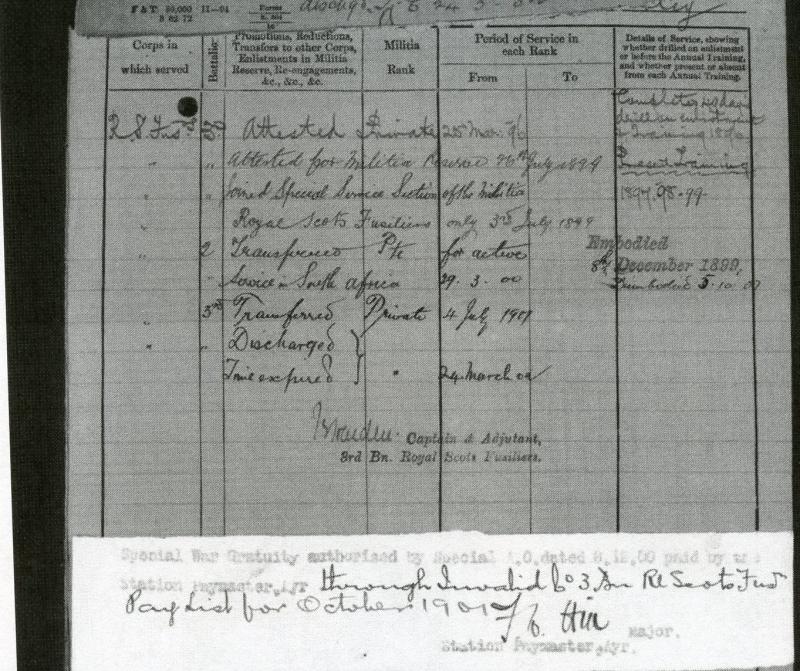 F & T 50,000 11—94
3 62 72
Forms
discharge
Corps in which served
Battalion
Promotions, Reductions, Transfers to other Corps, Enlistments in Militia Reserve, Re-engagements, &c., &c., &c.
Militia Rank
Period of Service in each Rank
From
To
Details of Service, showing whether drilled on enlistment or before the Annual Training, and whether present or absent from each Annual Training.
R. S. Fus Attested Private 25 Mar. 96
Completed 49 days
drill on enlistment
& Training 1896
" " Attested for Militia Reserve July 1899
Present Training
" " Joined Special Service Section of the Militia
1897.98-99
" Royal Scots Fusiliers only 3rd July 1899
" 2 Transferred Pte for active
Embodied
" Service in South Africa 29. 3. 00
8th December 1899,
Disembodied 5.10.01
" 3rd Transferred Private 4 July 1901
" " Discharged
Time expired " 24 March 02
Captain & Adjutant,
3rd Bn. Royal Scots Fusiliers.
Special War Gratuity authorised by Special A.O. dated paid by the
Station Paymaster, Ayr through Invalid Co 3 Bn Rl Scots Fus
Pay List for October 1901
Major.
Station Paymaster, Ayr.